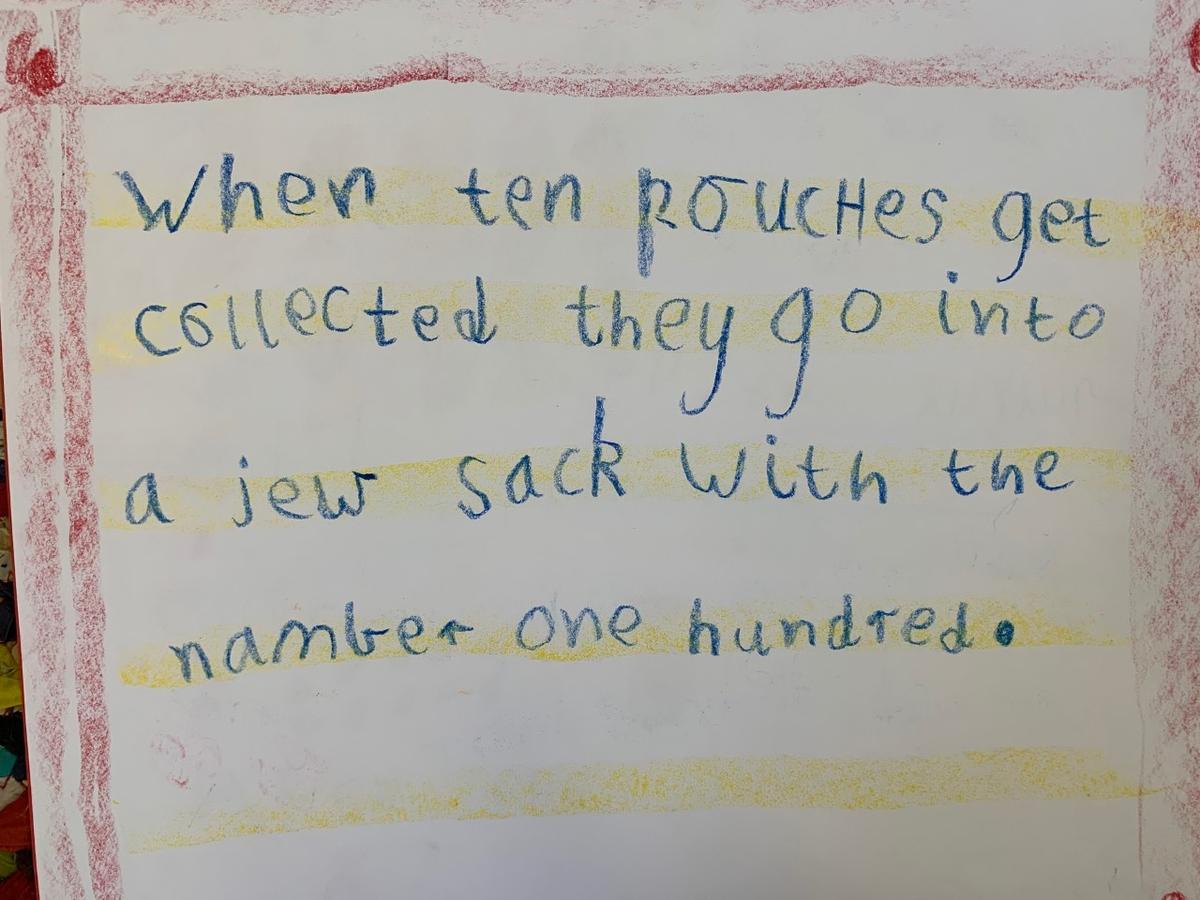 When ten pouCHes get
collected they go into
a jew sack with the
namber one hundred.